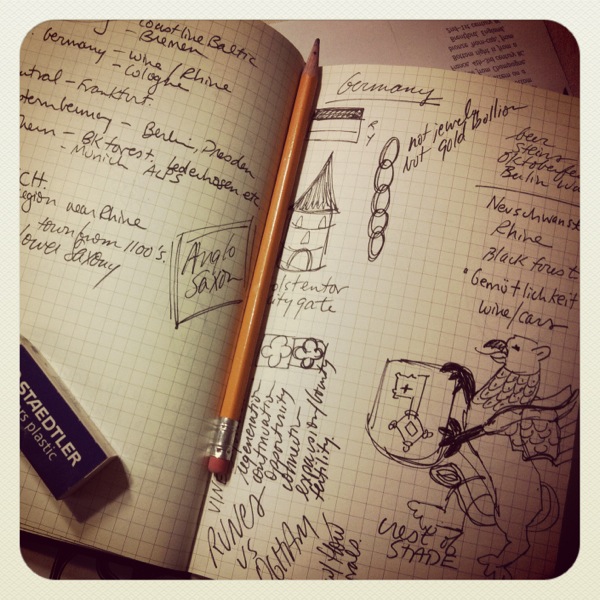 coastline Baltic
- Bremen
Germany - wine/Rhine
- Cologne
- Frankfurt
- Berlin, Dresden
- BK forest, lederhosen etc
- Munich Alps
CH.
region near Rhine
town from 1100's.
lower Saxony
Anglo
Saxon
STAEDTLER
rs plastic
Germany
R
Y
not jewelry
not gold bullion
beer
Steins
Oktoberfe
Berlin Wa
Neuschwanst
Rhine
Black forest
• Gemütlichkeit
wine/cars
olstentor
city gate
regeneration
continuation
opportunity
connection
expansion/bounty
fertility
VIN
RUNES
vs
crest of
STADE